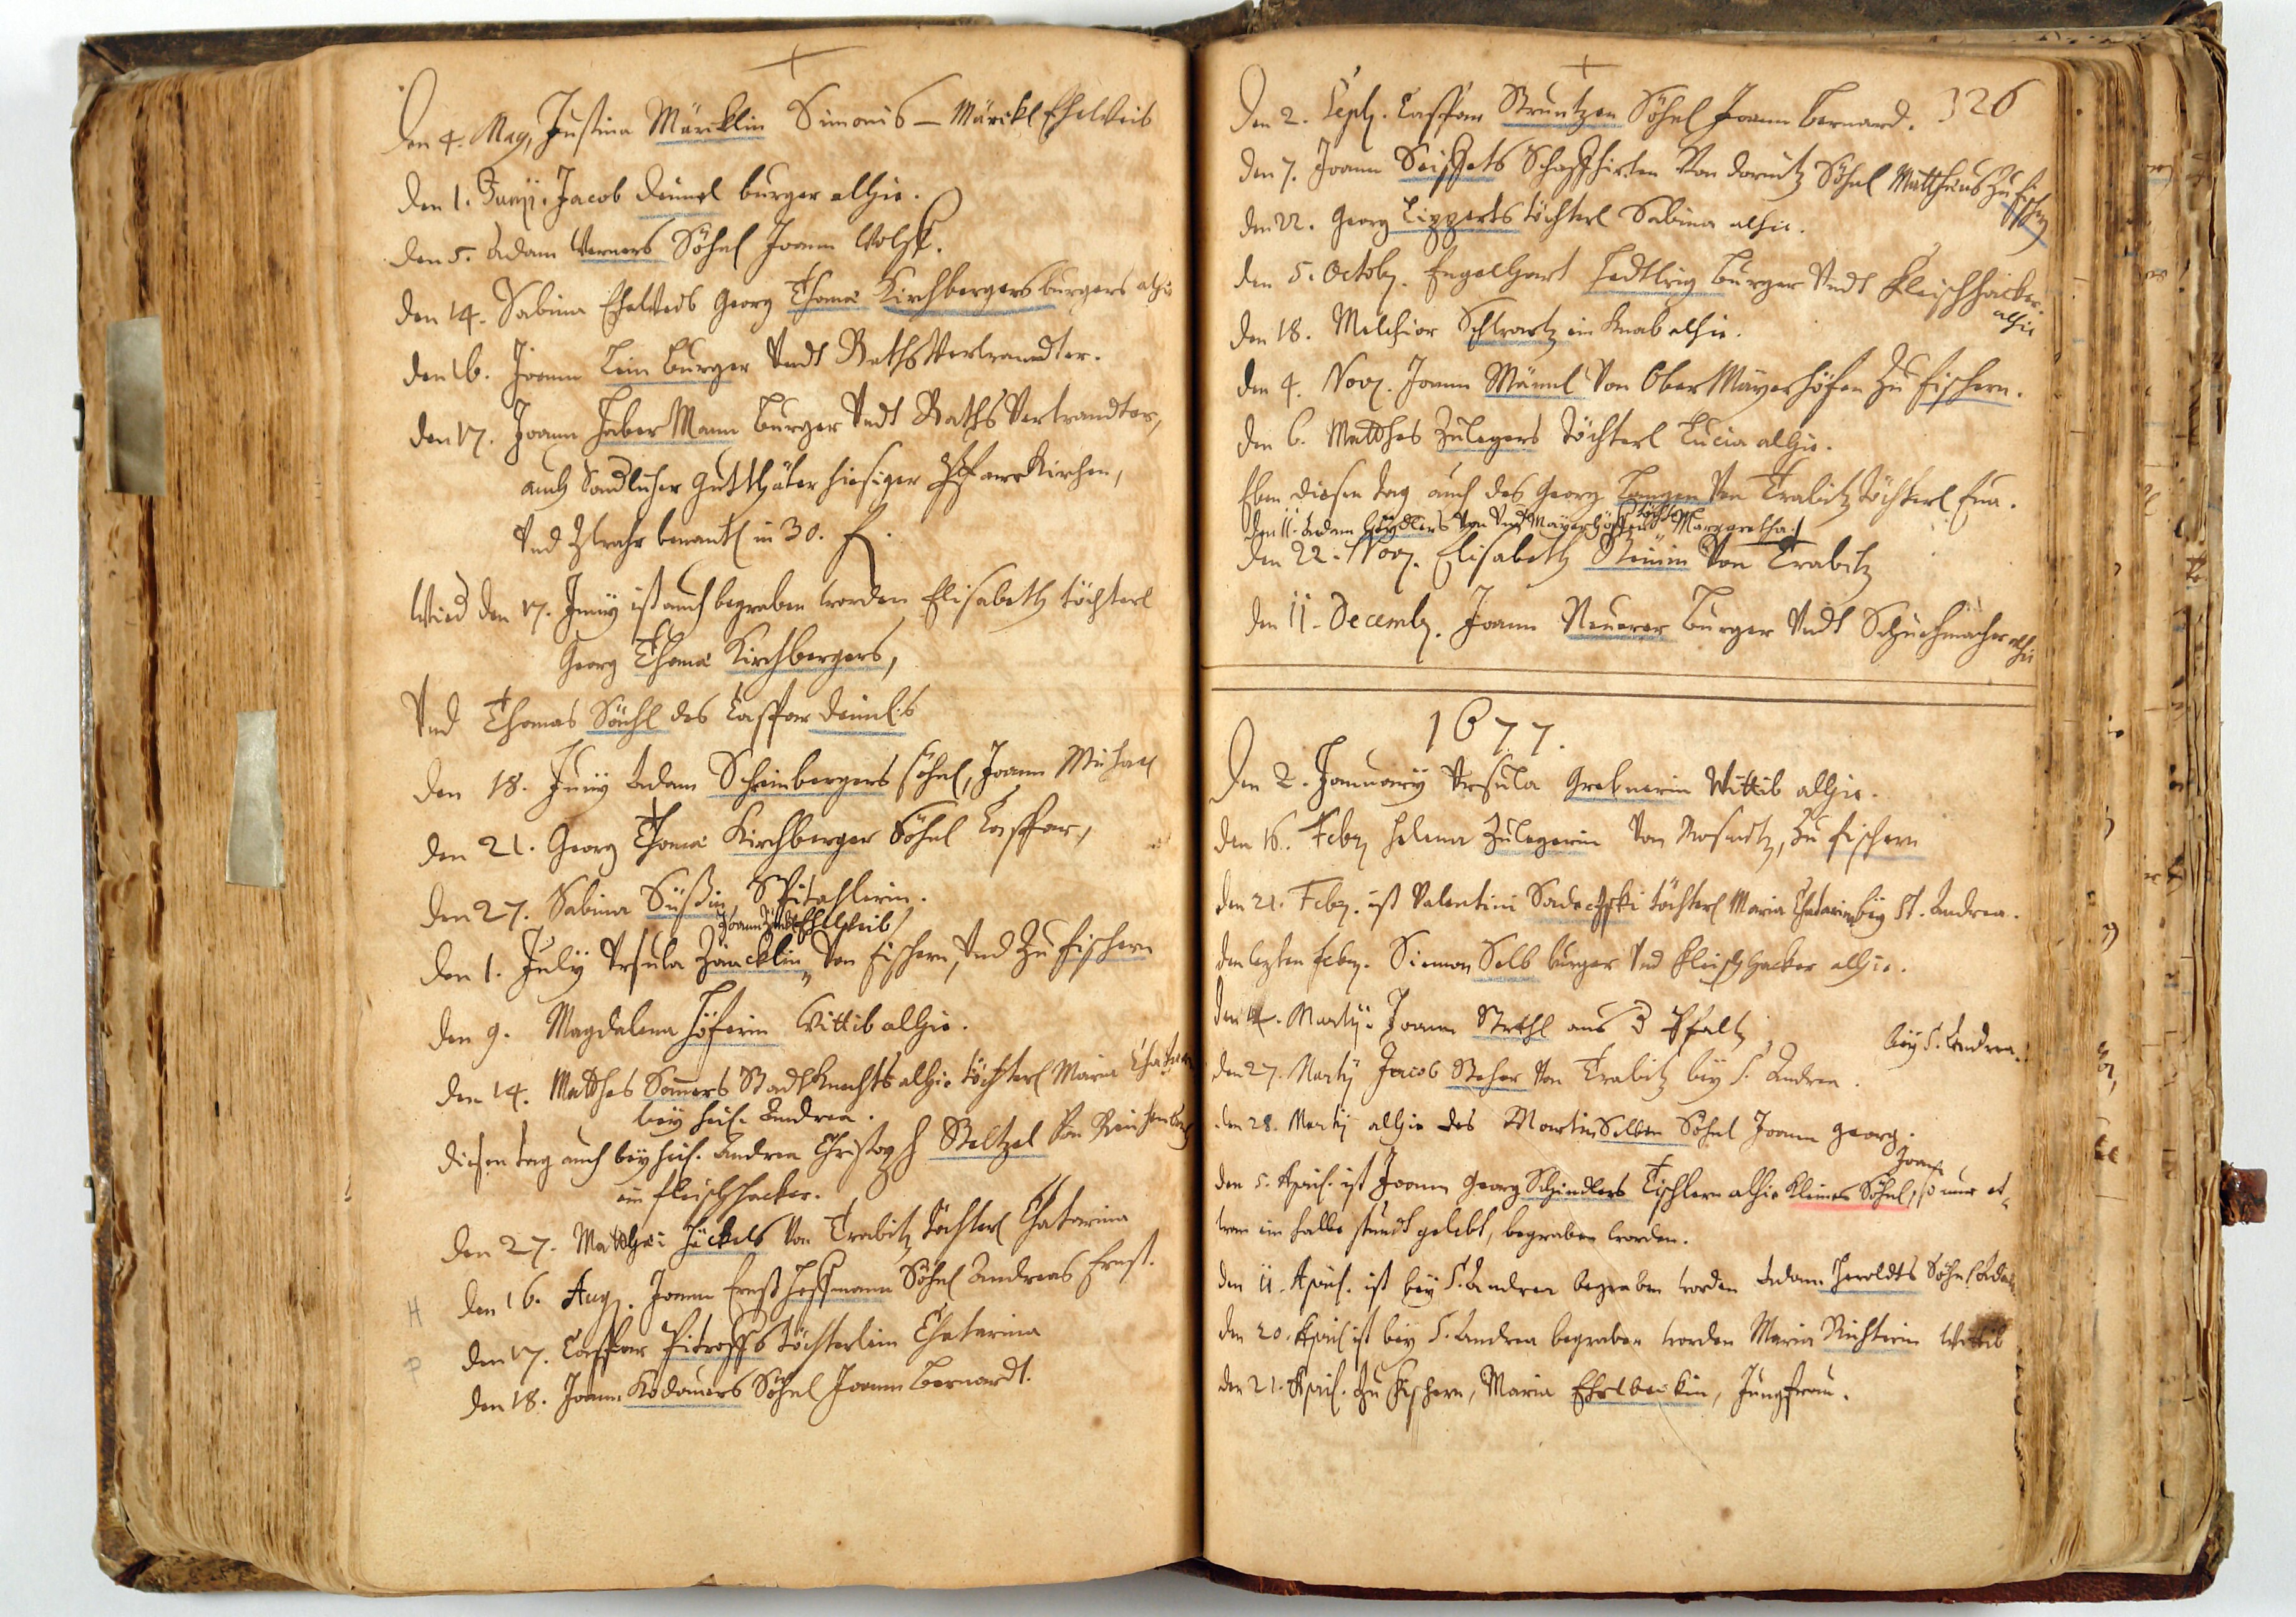 Den 4. May, Justina Märcklin Simonis – Märckl Eheweib
den 1. Junij. Jacob deiml burger alhie.
den 5. Adam Werners Söhnl Joann Wolff.
den 14. Sabina Eheweib Georg Thoma Kirchbergers burgers alhie
den 16. Joann Lein burger Undt Raths Verwandter.
den 17. Joann Haber Mann burger Undt Raths Verwandter,
auch Gutthäter hiesiger Pfarr Kirchen,
Und in 30. f.
den 17. Junij ist auch begraben worden Elisabeth töchterl
Georg Thoma Kirchbergers,
Und Thomas Söhl des Casspar deimls
den 18. Junij Adam Scheinbergers söhnl, Joann Michael
den 21. Georg Thoma Kirchberger Söhnl Casspar,
den 27. Sabina Süßin, Spitahlerin.
Joann Eheweib
den 1. July Ursula Zäncklin Von fischern, Und Zu fischern
den 9. Magdalena Höferin Wittib alhie.
den 14. Matthes Somers Stadtknechts alhie töchterl Maria
bey heil. Andrea.
diesen tag auch bey heil. Andrea Christoph Steltzel Von
ein fleischhacker.
den 27. Matthaei Häckels Von Trabitz töchterl Chatarina
den 16. Aug. Joann Ernst Hoffmann Söhnl Andreas Ernst.
den 17. Casspar Pitroffs töchterlein Chatarina
den 18. Joann Kodauers Söhnl Joann Bernardt.
Den 2. Sept. Casspar Struntzen Söhnl Joann Bernard. 326
den 7. Joann Seifferts Schaffhirten Von dornitz Söhnl Mattheus Zu fischern
den 22. Georg Lipperts töchterl Sabina alhie.
den 5. Octob. Engelhart Hedtlrig Burger Undt fleischhacker
alhie
den 18. Melchior Schwartz ein Knab alhie.
den 4. Nov. Joann Männl Von Ober Mayerhöfen Zu fischern.
den 6. Matthes Zulegers töchterl Lucia alhie.
Eben diesen tag auch des Georg Langen Von Trabitz töchterl Eua.
den 11. Adam Von Undt Mayerhöffen töchterl Margaretha.
den 22. Nov. Elisabeth Von Trabitz
den 11. Decemb. Joann Neuerer Burger Undt Schuchmacher alhie
1677.
Den 2. January Ursula Grebnerin Wittib alhie.
den 16. Feb. Helena Zulegerin Von, Zu fischern
den 21. Feb. ist Valentini töchterl Maria Chatarina bey St. Andrea.
den lezten feb. Siemon Selb burger Und fleischhacker alhie.
den Martij. Joann Strehl aus Pfaltz, bey S. Andrea.
den 27. Martij Jacob Steher Von Trabitz bey S. Andrea.
den 28. Martij alhie des Martin Selben Söhnl Joann georg.
Joann
den 5. April. ist Joann Georg Schindlers Tischlern alhie kleines Söhnl, so nur et-
wan ein halbe stundt gelebt, begraben worden.
den 11. April. ist bey S. Andrea begraben worden Adam Heroldts Söhnl Adam
den 20. April ist bey S. Andrea begraben worden Maria Richterin Wittib
den 21. April. Zu fischern, Maria Ehrlbeckin, Jungfrau.